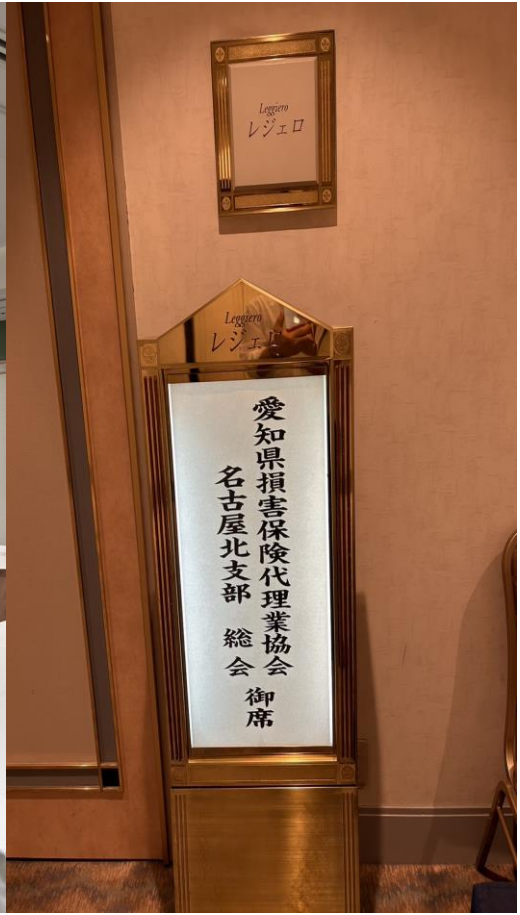 Leggiero
レジェロ
Leggiero
レジェロ
愛知県損害保険代理業協会
名古屋北支部 総会
御席